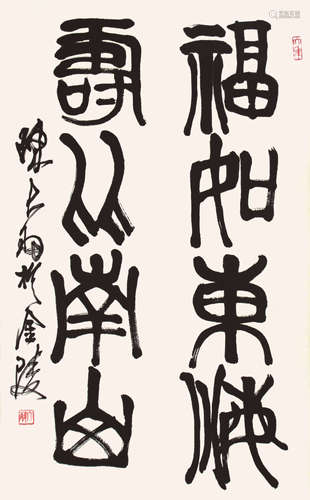 福如東海
壽比南山
陳大羽於金陵